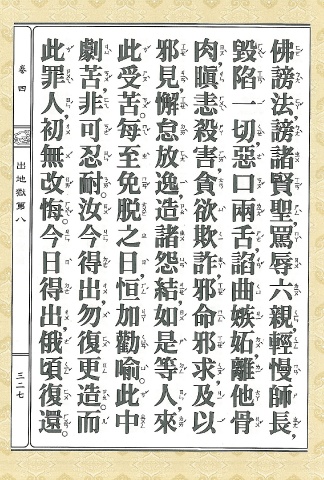 佛謗法謗諸賢聖，罵辱六親輕慢師長，
毀陷一切惡口兩舌諂曲嫉妬離他骨
肉瞋恚殺害貪欲欺詐邪命邪求及以
邪見懈怠放逸造諸怨結如是等人來
此受苦。每至免脫之日，恒加勸喻。此中
劇苦非可忍耐汝今得出勿復更造。而
此罪人，初無改悔。今日得出俄頃復還。
卷四
出地獄第八
三二七